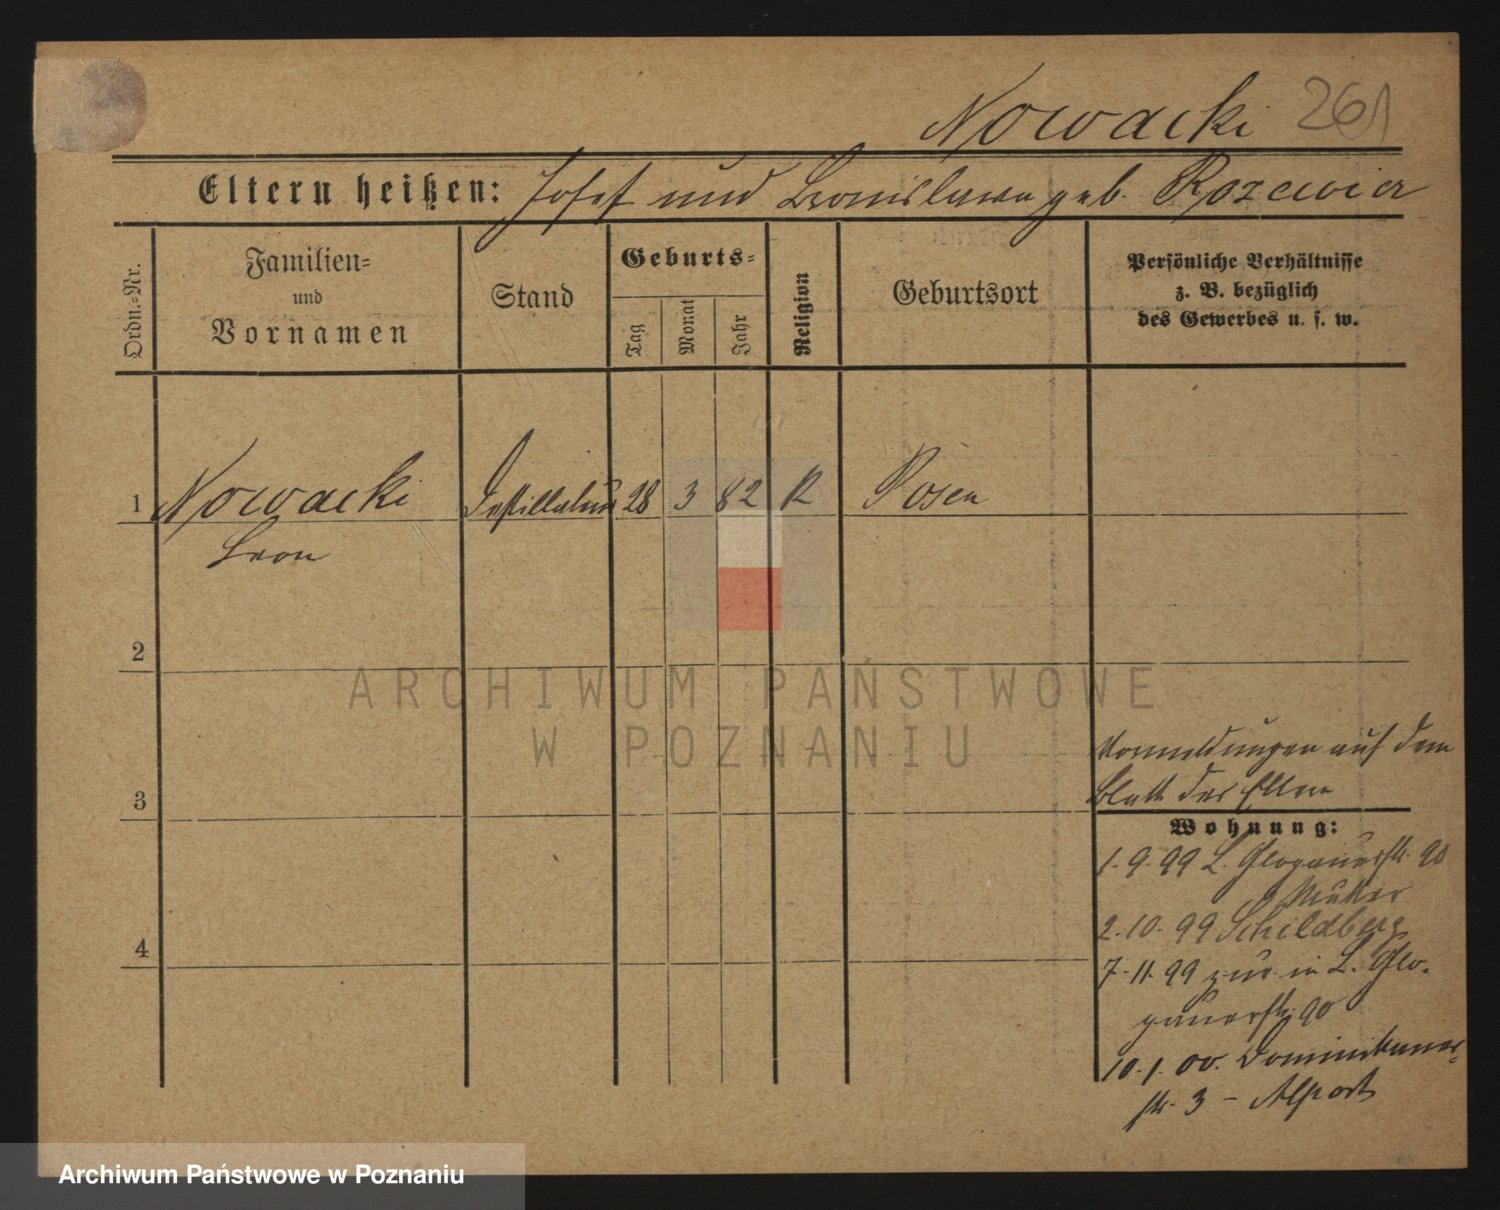 Nowacki 261
Eltern heißen: Josef und Bronislawa geb. Rozewicz
Ordn.-Nr.
Familien-
und
Vornamen
Stand
Geburts-
Tag
Monat
Jahr
Religion
Geburtsort
Persönliche Verhältnisse
z. B. bezüglich
des Gewerbes u. s. w.
1 Nowacki Destillateur 28 3 82 R Posen
Leon
2
ARCHIWUM PAŃSTWOWE
W POZNANIU
Vormeldungen auf dem
Blatt der Eltern
3
Wohnung:
1.9.99 L. Glogauerstr. 90
Mutter
2.10.99 Schildberg
4
7.11.99 zur. in L. Glo-
gauerstr. 90
10.1.00. Dominikaner-
str. 3 -
Archiwum Państwowe w Poznaniu